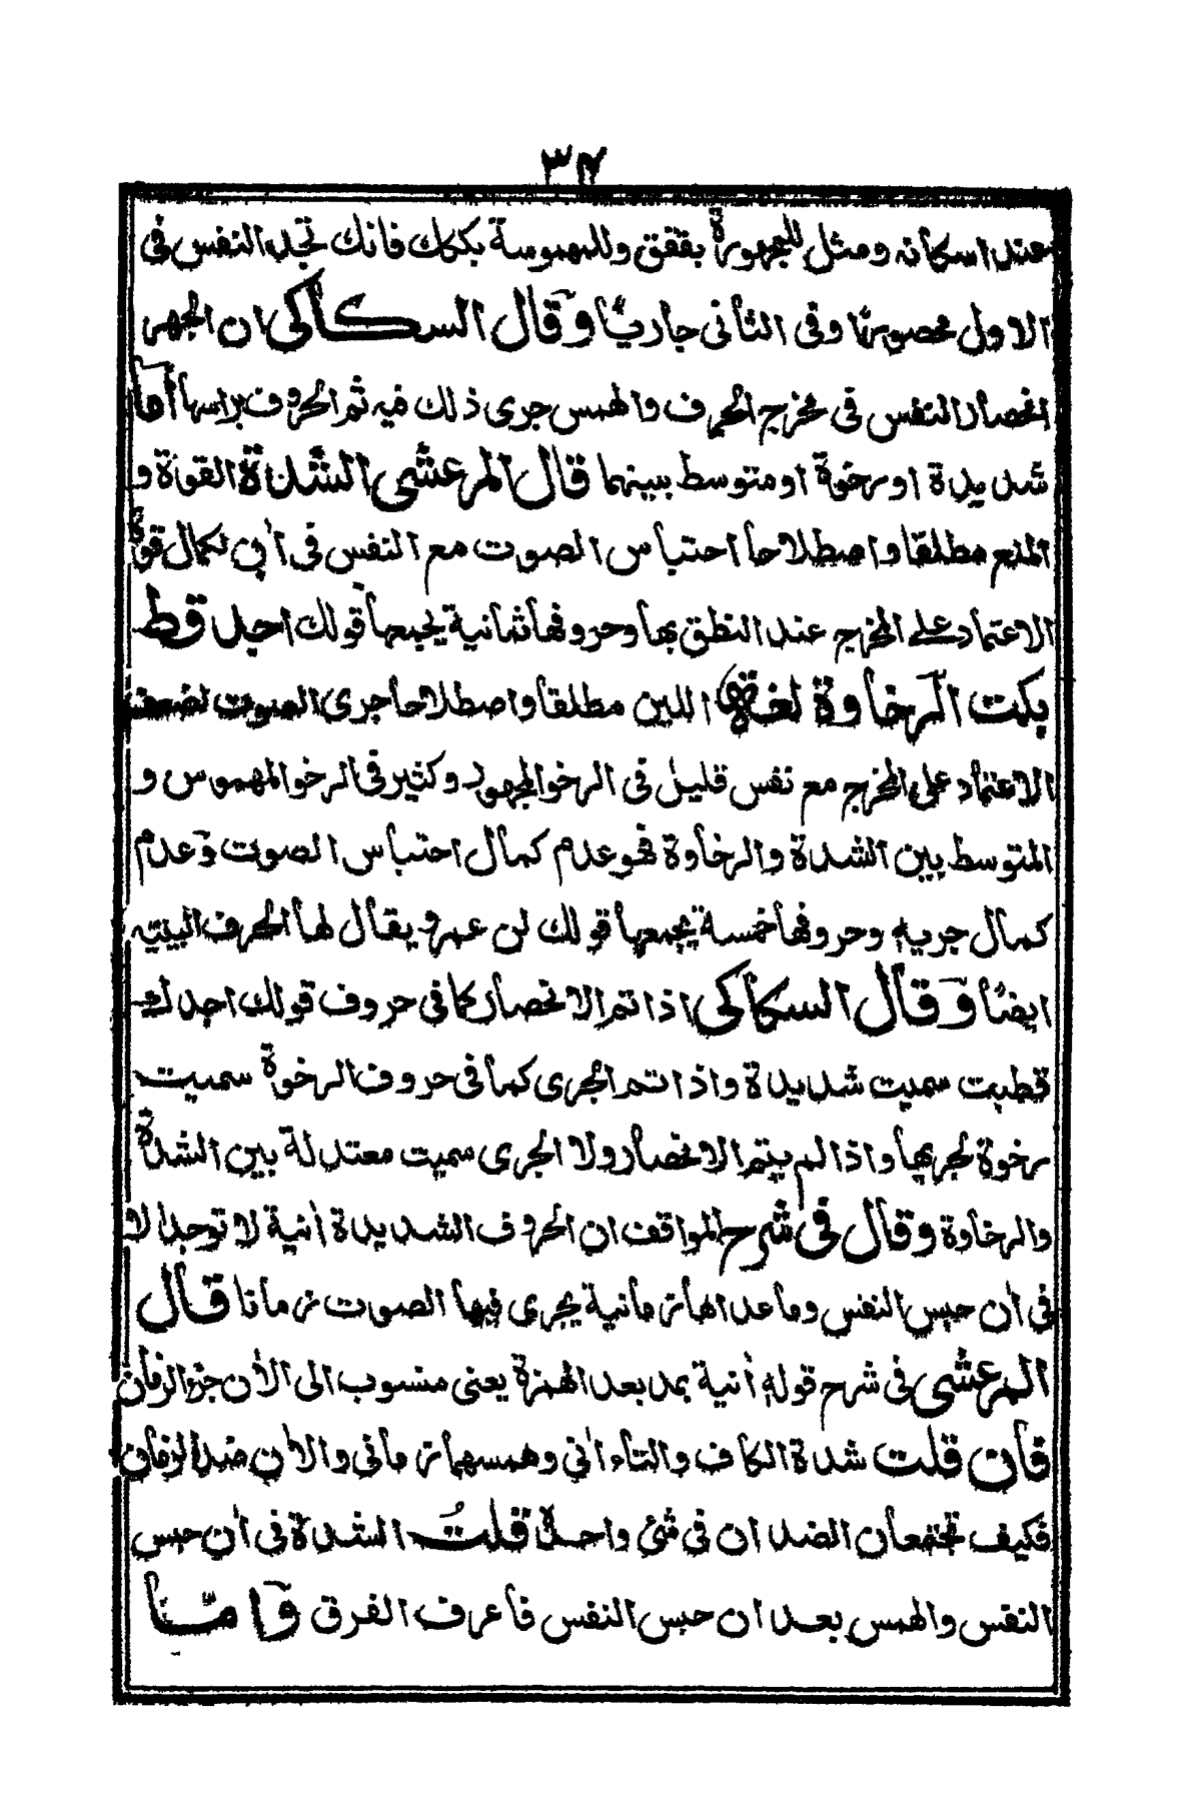 ٣٧
عند اسكانه ومثل للمجهورة بققق وللمهموسة بككك فانك تجد النفس فى
الاول محصورا وفى الثانى جاريا وقال السكاكى ان الجهر
انحصار النفس فى مخرج الحرف والهمس جرى ذلك فيه ثم الحروف براسها أما
شديدة او رخوة او متوسط بينهما قال المرعشى الشدة القوة و
المنع مطلقا واصطلاحا احتباس الصوت مع النفس فى آن لكمال قوة
الاعتماد على المخرج عند النطق بها وحروفها ثمانية يجمعها قولك اجد قط
بكت الرخاوة لغة اللين مطلقا واصطلاحا جرى الصوت لضعف
الاعتماد على المخرج مع نفس قليل فى الرخو المجهور وكثير فى الرخو المهموس و
المتوسط بين الشدة والرخاوة فهو عدم كمال احتباس الصوت وعدم
كمال جريه وحروفها خمسة يجمعها قولك لن عمر ويقال لها الحرف البينيه
ايضا وقال السكاكى اذا تم الانحصار كما فى حروف قولك اجدك
قطبت سميت شديدة واذا تم الجرى كما فى حروف الرخوة سميت
رخوة لجريها واذا لم يتم الانحصار ولا الجرى سميت معتدلة بين الشدة
والرخاوة وقال فى شرح المواقف ان الحروف الشديدة أنية لا توجد الا
فى أن حبس النفس وما عداها زمانية يجرى فيها الصوت زمانا قال
المرعشى فى شرح قوله أنية بمد بعد الهمزة يعنى منسوب الى الأن جزء الزمان
فان قلت شدة الكاف والتاء انى وهمسهما زمانى والان ضد الزمان
فكيف تجتمعان الضدان فى شئ واحد قلت الشدة فى ان حبس
النفس والهمس بعد ان حبس النفس فاعرف الفرق وامّا